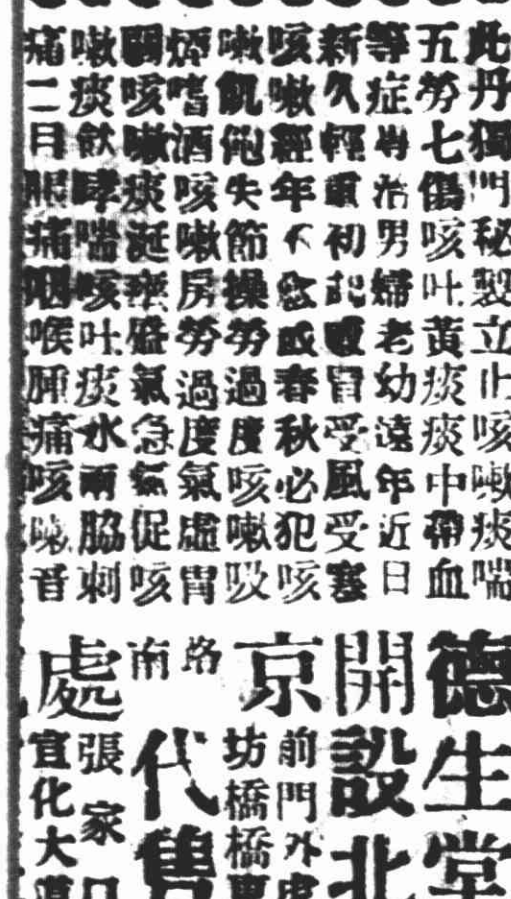 此丹獨門秘製立止咳嗽痰喘
五勞七傷咳吐黃痰痰中帶血
等症專治男婦老幼遠年近日
新久輕重初起感冒受風受寒
咳嗽經年不愈或春秋必犯咳
嗽飢飽失節操勞過度咳嗽吸
煙嗜酒咳嗽房勞過度氣虛胃
關咳嗽痰涎壅盛氣急氣促咳
嗽痰飲哮喘咳吐痰水兩脇刺
痛二目眼痛咽喉腫痛咳嗽音
德生堂
開設北
京
前門外
坊橋橋
路
南
代售
處
張家口
宣化大